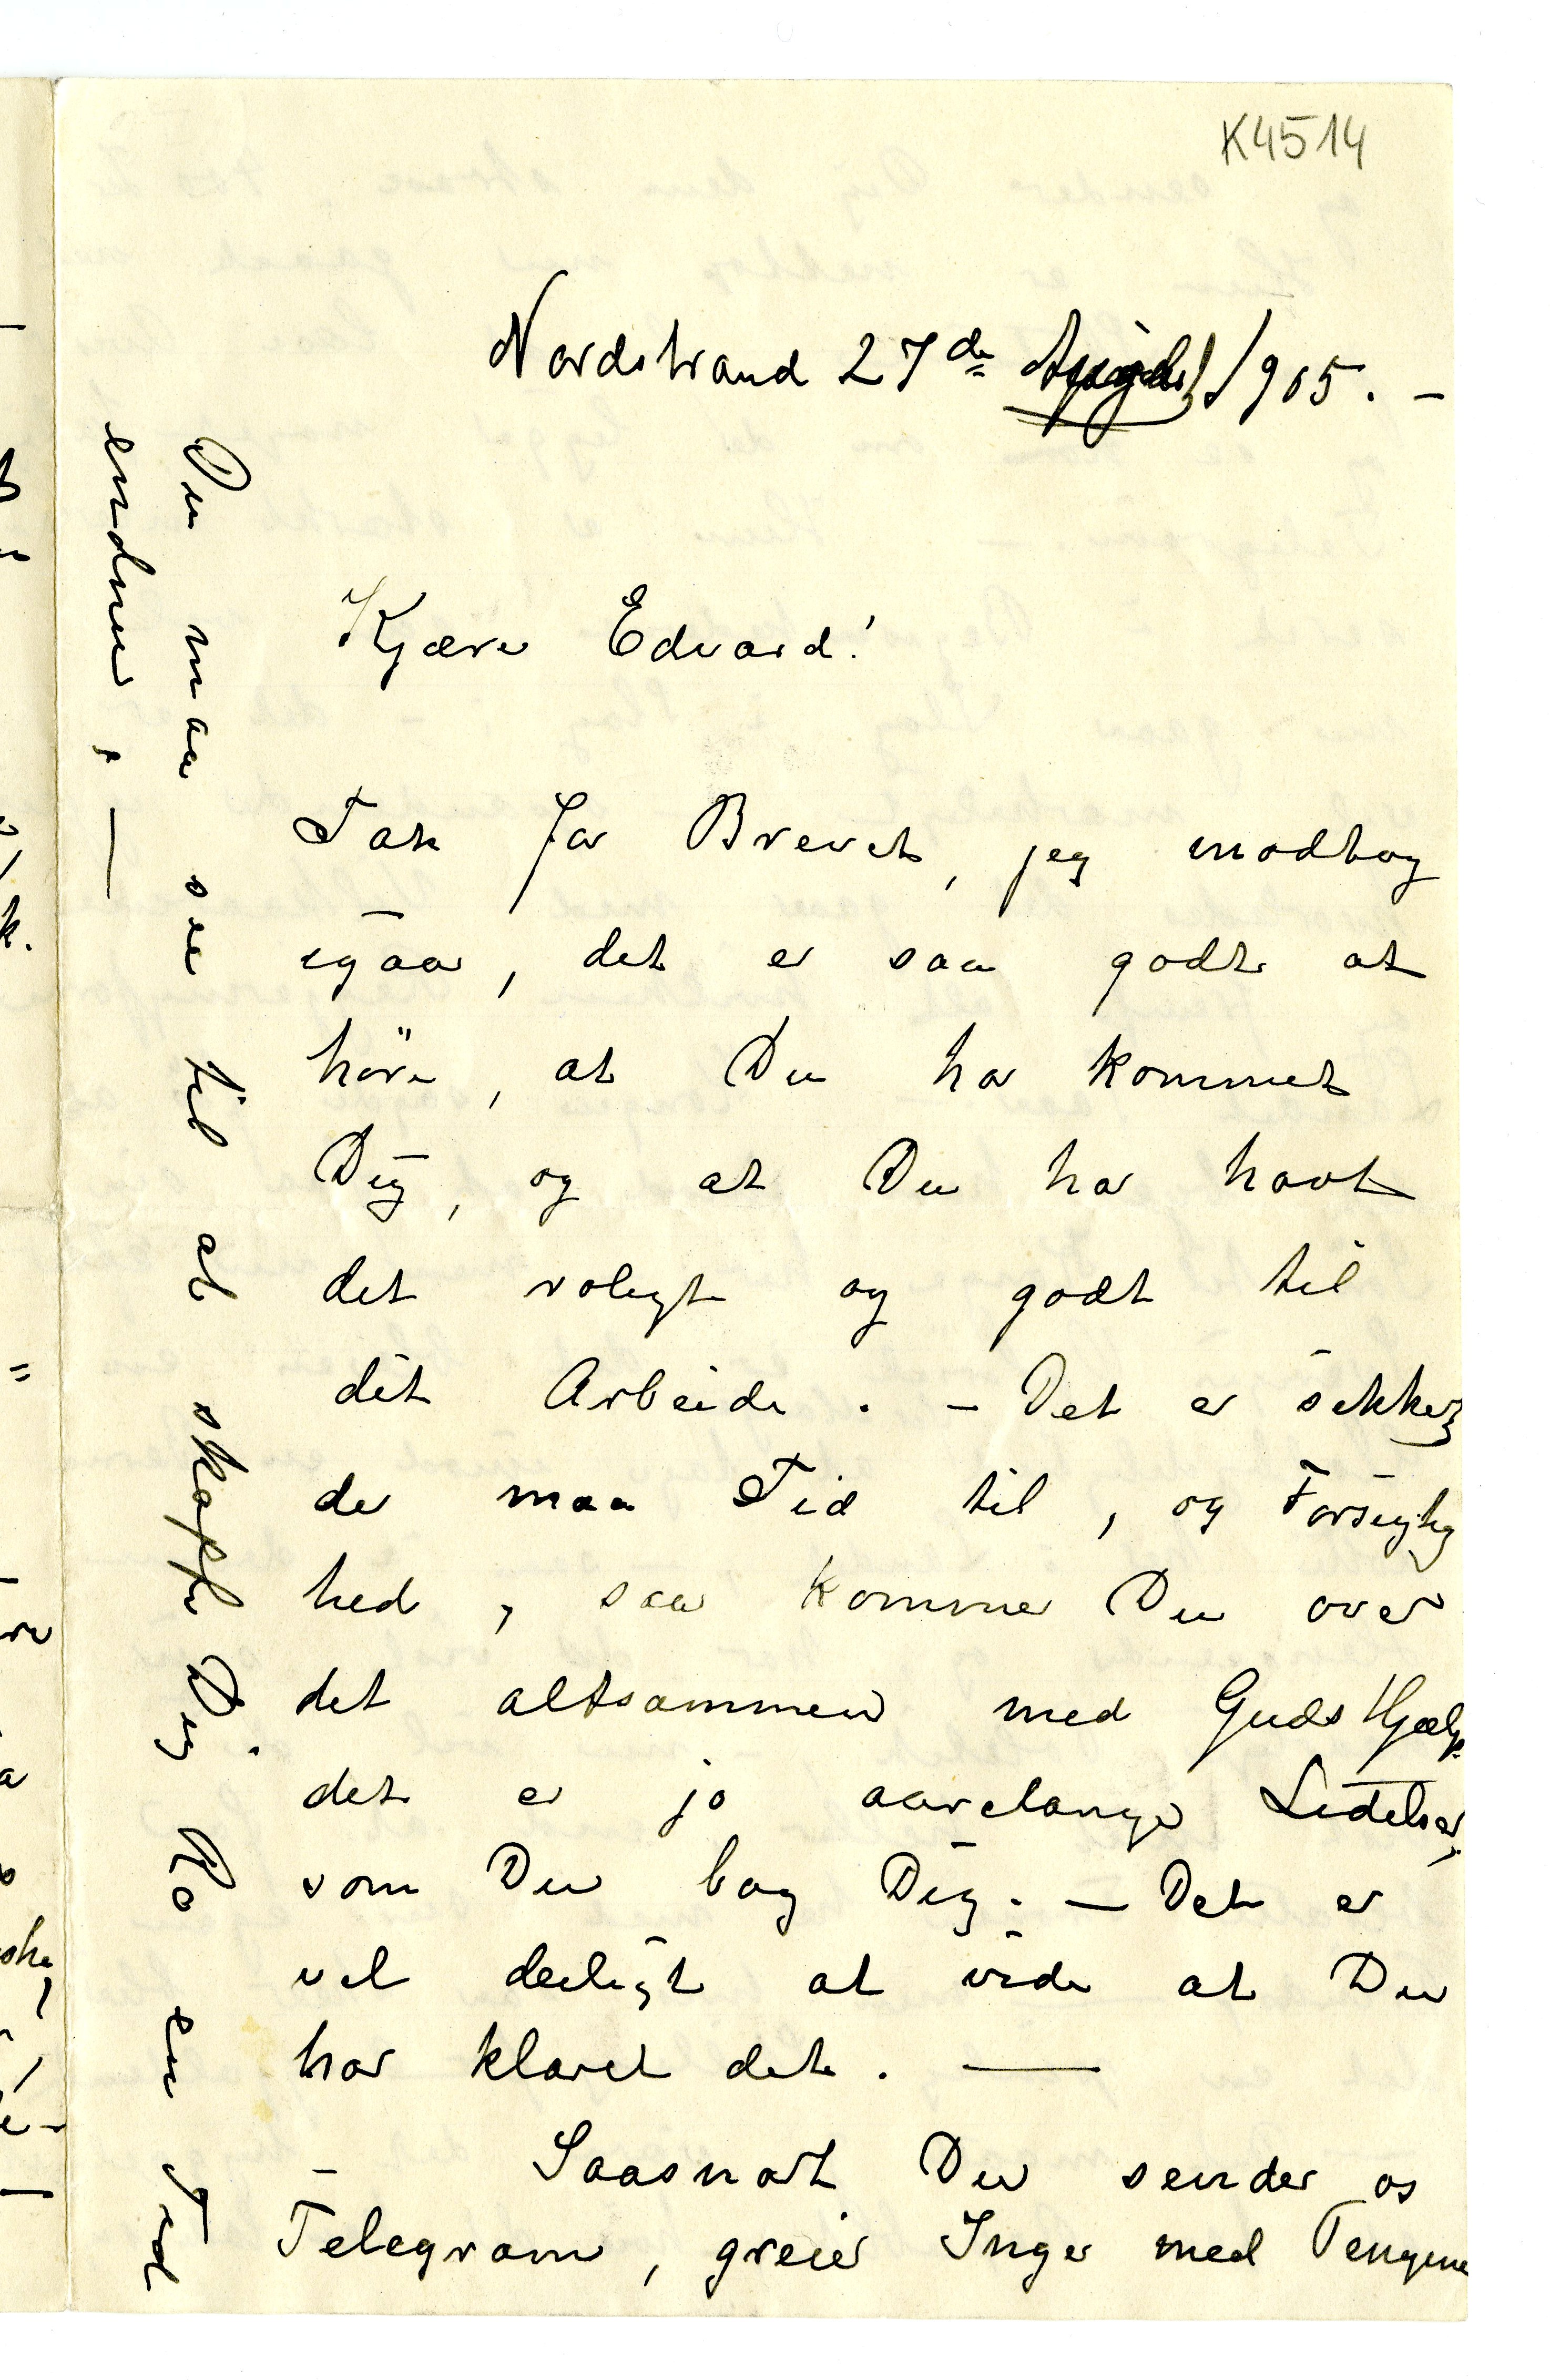 K4514
Nordstrand 27de 1905. –
Kjære Edvard!
Tak for Brevet, jeg modtog
igaar, det er saa godt at
höre, at Du har kommet
Dig, og at Du har havt
det roligt og godt til
dit Arbeide. – Det er sikkert
der maa Tid til, og Forsigtig
hed, saa kommer Du over
det altsammen med Guds Hjælp.
det er jo aarelange Lidelser,
som Du bag Dig. – Det er
vel deiligt at vide at Du
har klaret det. –
Saasnart Du sender os
Telegram, greier Inger med Pengene
Du maa see til at skaffe Dig Ro en Tid
endnu, –